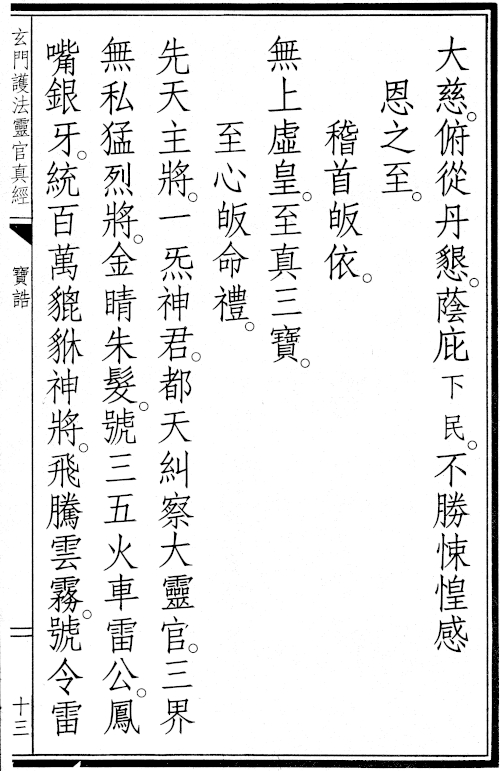 大慈。俯從丹懇。蔭庇下民。不勝悚惶感
恩之至。
稽首皈依。
無上虛皇。至真三寶。
至心皈命禮。
先天主將。一炁神君。都天糾察大靈官。三界
無私猛烈將。金睛朱髮。號三五火車雷公。鳳
嘴銀牙。統百萬貔貅神將。飛騰雲霧。號令雷
玄門護法靈官真經
寶誥
十三